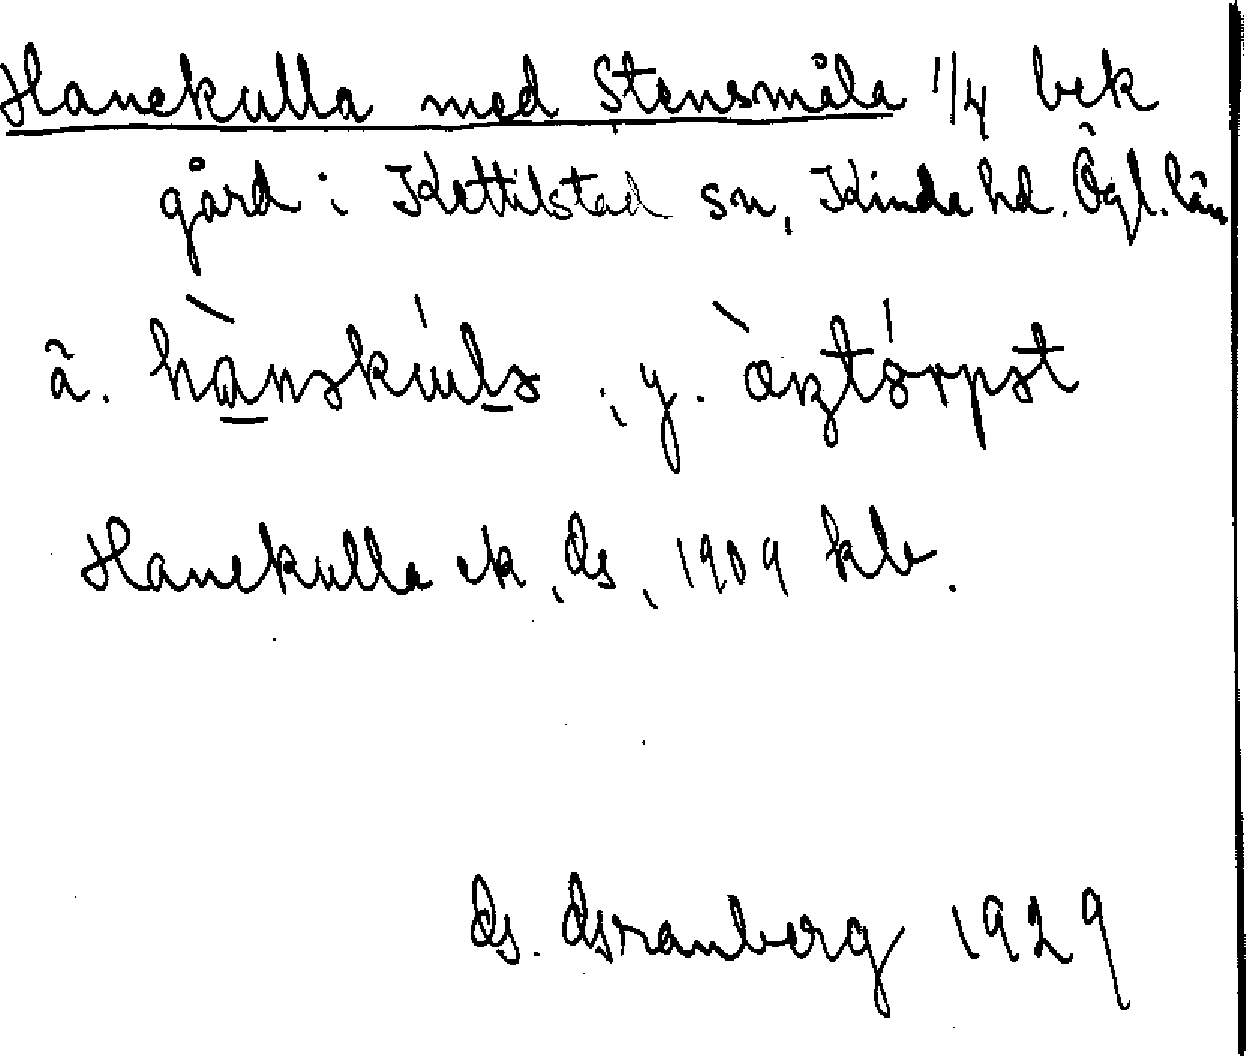 Hanekulla med Stensmåla 1/4 bek
gård i Kettilstad sn, Kinda hd. Ögl. län
ä.
y.
Hanekulla ek, Gs, 1909 kb.
G. Granberg 1929